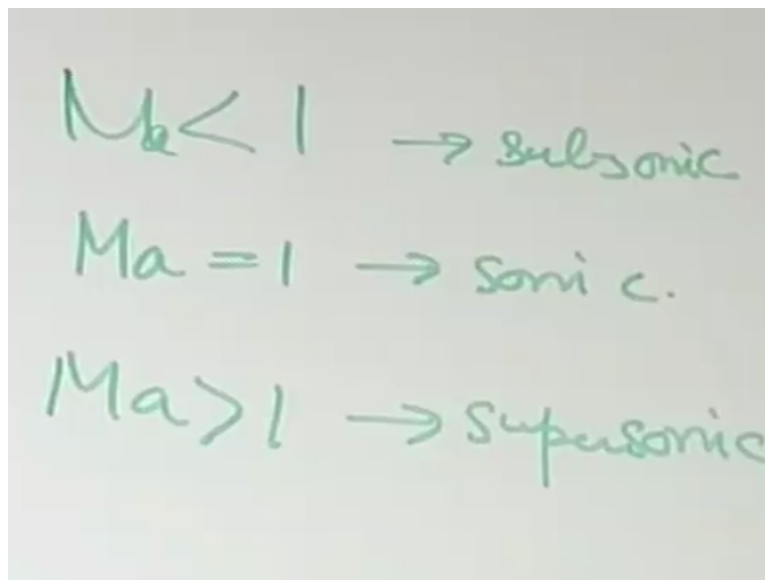 Ma < 1 → subsonic
Ma = 1 → sonic.
Ma > 1 → supersonic